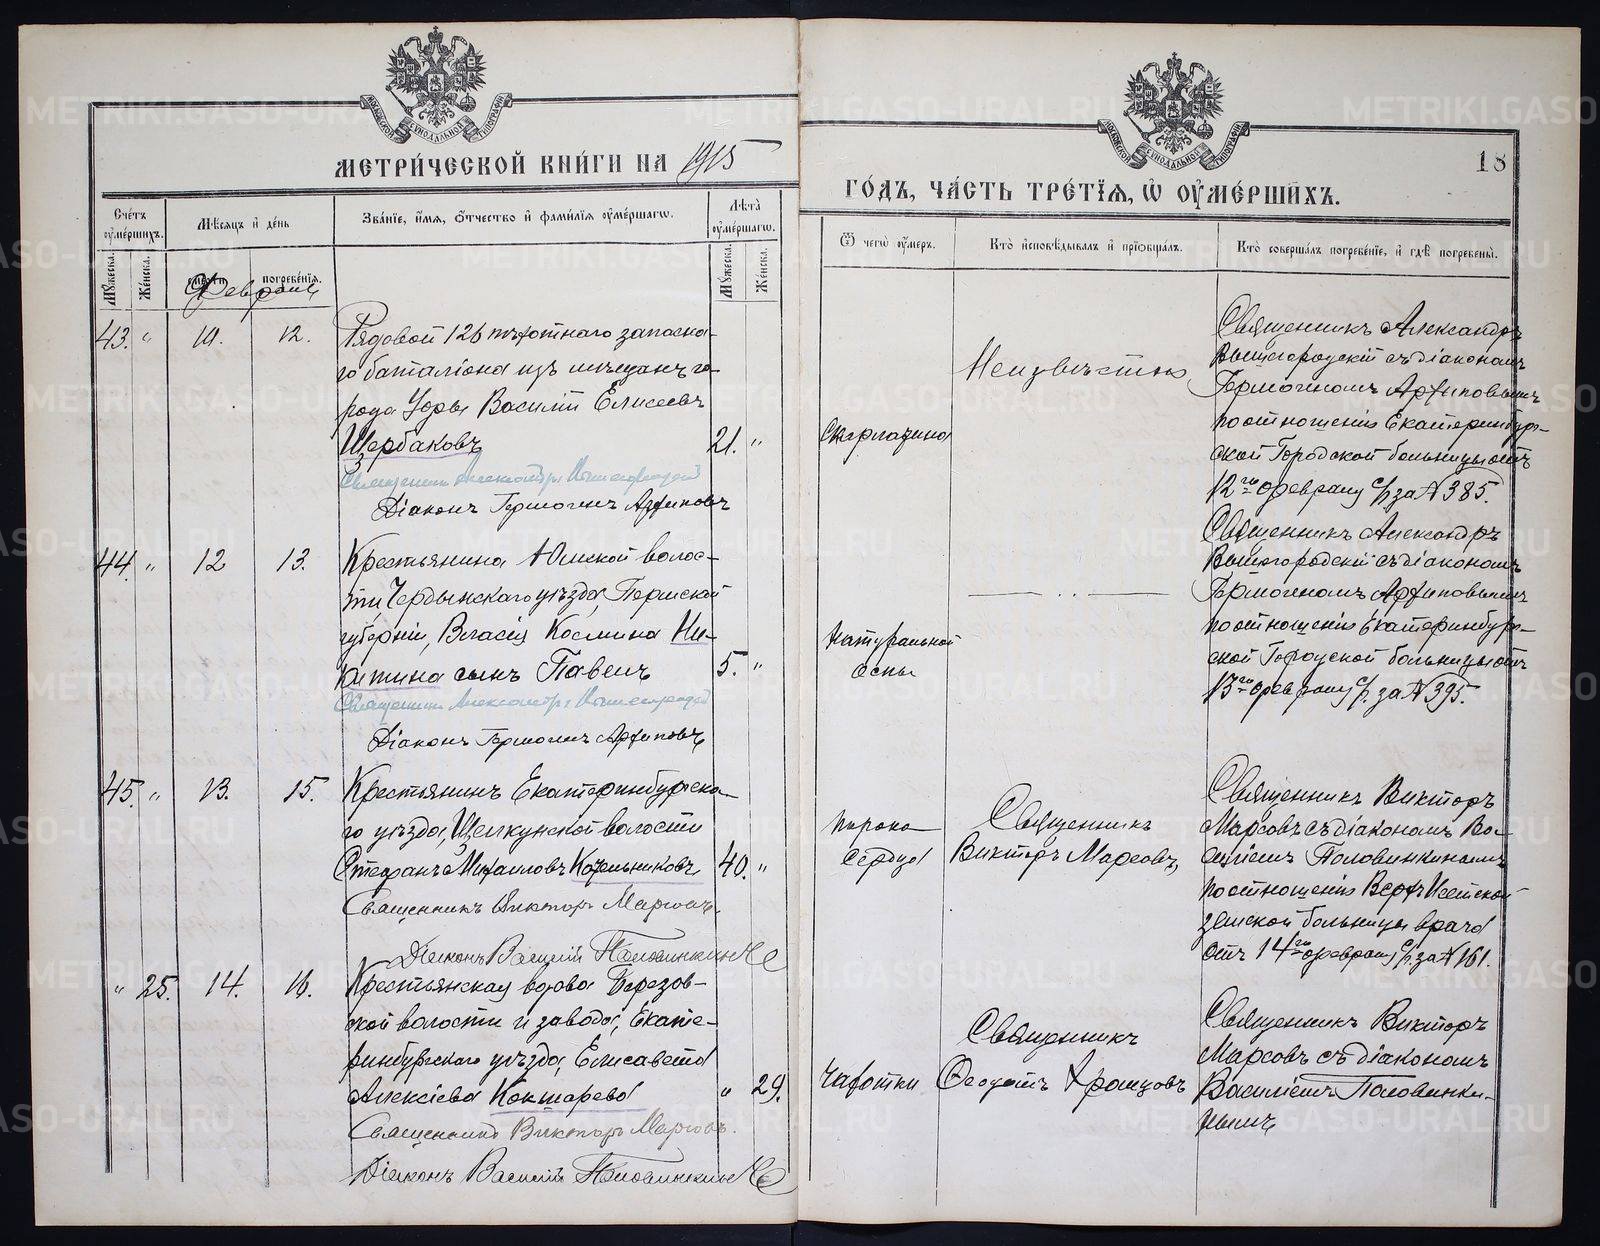 МЕТРИ́ЧЕСКОЙ КНИ́ГИ НА 1915
ГО́ДЪ, ЧА́СТЬ ТРЕ́ТЇѦ, Ѡ҆ ОУ҆МЕ́РШИХЪ.
18
Счётъ оу҆мершихъ.
Мѣсяцъ и҆ де́нь
Зва́нїе, и҆́мѧ, ѻ҆́тчество и҆ фами́лїѧ оу҆ме́ршагѡ.
Лѣта̀ оу҆ме́ршагѡ.
Ѿ чегѡ̀ оу҆́меръ.
Кто̀ и҆сповѣ́дывалъ и҆ прїѡбща́лъ.
Кто̀ соверша́лъ погребе́нїе, и҆ гдѣ̀ погребены̀.
Мꙋ́жеска.
Же́нска.
сме́рти.
погребе́нїѧ.
Мꙋ́жеска.
Же́нска.
Февраль
43. " 10. 12.
Рядовой 126 пѣхотнаго запасна-
го баталіона изъ мѣщанъ го-
рода Уфы Василій Елисеевъ
Щербаковъ
21. "
Священникъ Александръ Вышегородскій
Діаконъ Гермогенъ Архиповъ
скарлатина
Неизвѣстно
Священникъ Александръ
Вышегородскій съ діакономъ
Гермогеномъ Архиповымъ
по отношенію Екатеринбург-
ской Городской больницы отъ
12го февраля с/г за № 385.
44. " 12 13.
Крестьянина Юмской волос-
ти Чердынскаго уѣзда, Пермской
губерніи, Власія Космина Ни-
китина сынъ Павелъ
5. "
Священникъ Александръ Вышегородскій
Діаконъ Гермогенъ Архиповъ
натуральной
оспы
— .. —
Священникъ Александръ
Вышегородскій съ діакономъ
Гермогеномъ Архиповымъ
по отношенію Екатеринбург-
ской Городской больницы отъ
13го февраля с/г. за № 395.
45. " 13. 15.
Крестьянинъ Екатеринбургска-
го уѣзда, Щелкунской волости
Стефанъ Михаиловъ Котельниковъ
40. "
Священникъ Викторъ Марсовъ.
Діаконъ Василій Половинкинъ
порока
сердца
Священникъ
Викторъ Марсовъ
Священникъ Викторъ
Марсовъ съ діакономъ Ва-
силіемъ Половинкинымъ
по отношенію Верхъ Исетской
земской больницы врача
отъ 14го февраля с/г. за № 161.
" 25. 14. 16.
Крестьянская вдова Березов-
ской волости и завода, Екате-
ринбургскаго уѣзда, Елисавета
Алексіева Коктарева
" 29.
Священникъ Викторъ Марсовъ.
Діаконъ Василій Половинкинъ
Чахотки
Священникъ
Ѳеодотъ Храмцовъ
Священникъ Викторъ
Марсовъ съ діакономъ
Василіемъ Половинки-
нымъ
METRIKI.GASO-URAL.RU